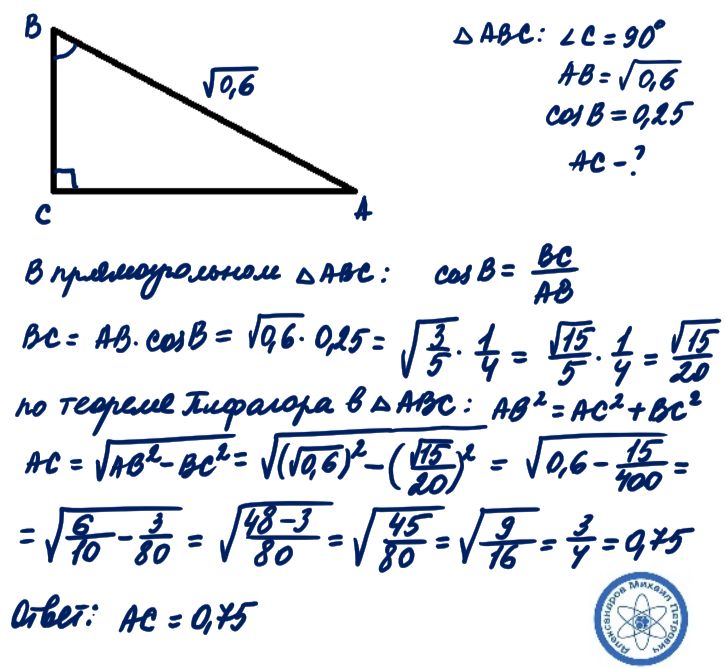 B
√0,6
C
A
△ABC: ∠C = 90°
AB = √0,6
cosB = 0,25
AC - ?
В прямоугольном △ABC: cosB = BC/AB
BC = AB · cosB = √0,6 · 0,25 = √(3/5) · 1/4 = √15/5 · 1/4 = √15/20
по теореме Пифагора в △ABC: AB² = AC² + BC²
AC = √(AB² - BC²) = √((√0,6)² - (√15/20)²) = √(0,6 - 15/400) =
= √(6/10 - 3/80) = √((48-3)/80) = √(45/80) = √(9/16) = 3/4 = 0,75
Ответ: AC = 0,75
Александров Михаил Петрович